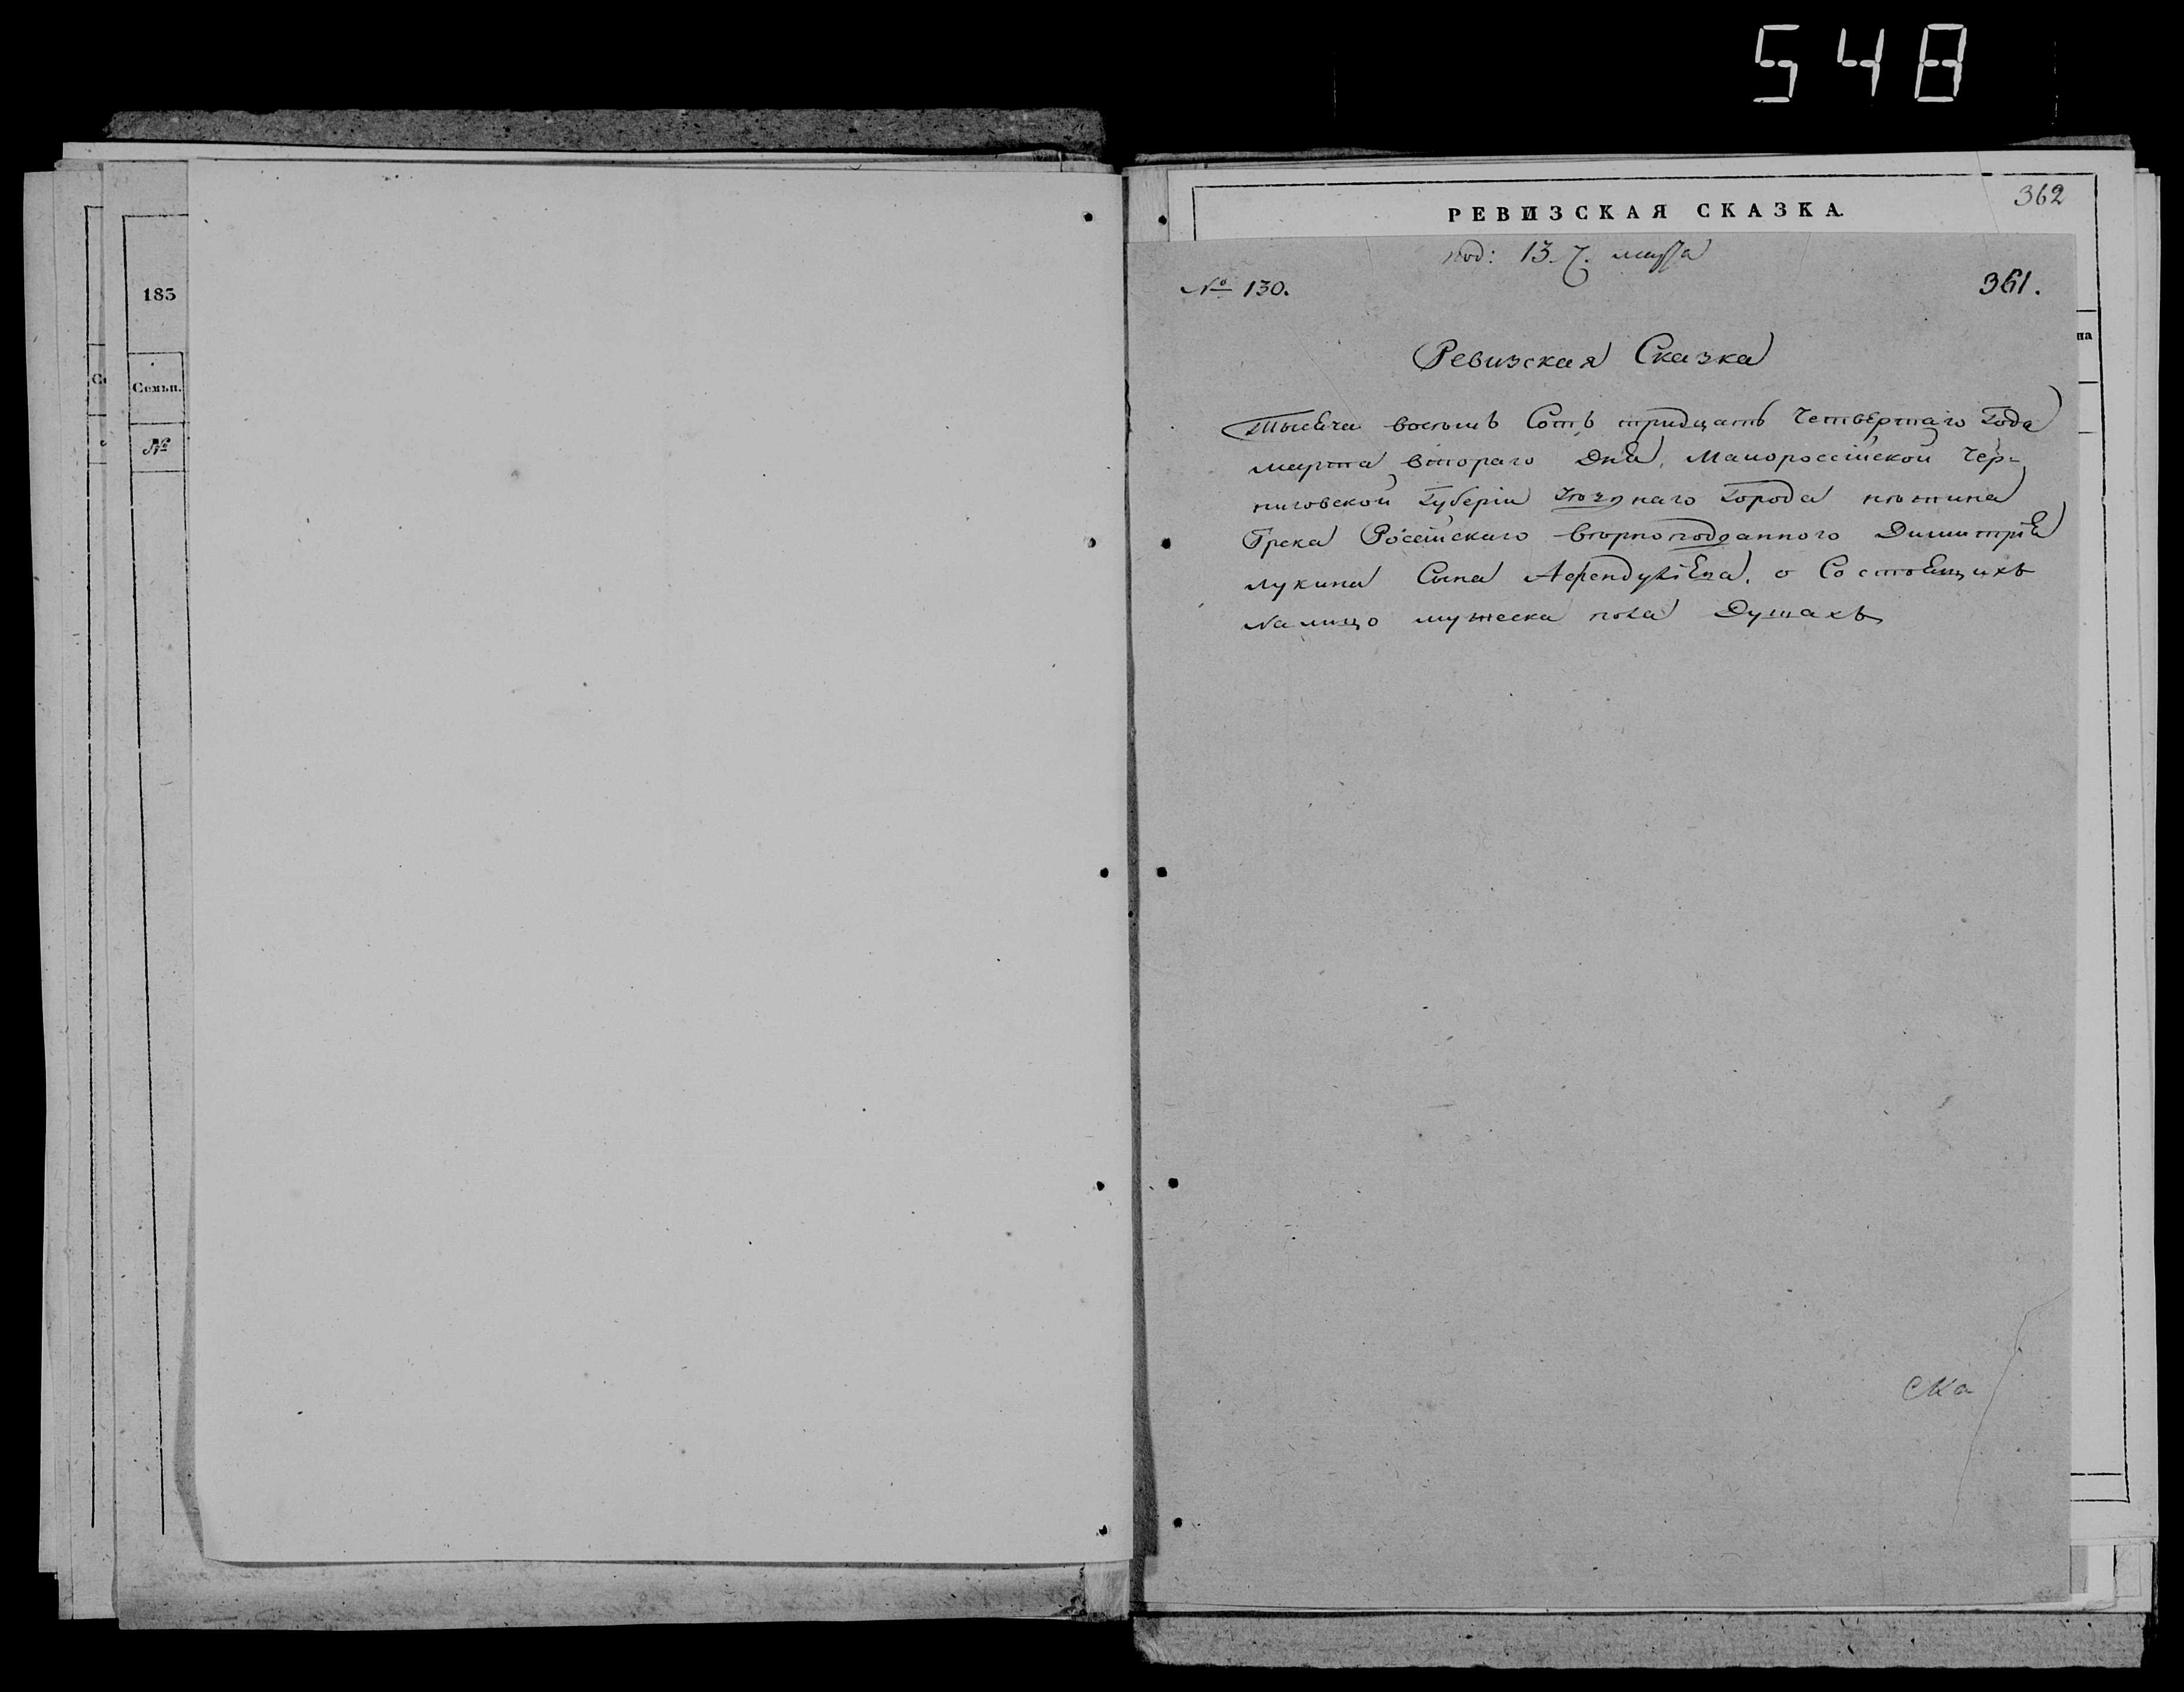 548
185
Семьи.
№
362
РЕВИЗСКАЯ СКАЗКА.
под: 13. марта
№ 130.
361.
Ревизская Сказка
Тысяча восемь Сотъ тридцать Четвертаго Года
марта втораго Дня, Малороссійской Чер-
ниговской Губерніи Уезднаго Города нежина
Грека Росейскаго вѣрноподданного Димитрія
лукина Сына Аефендуліева, о Состоящихъ
налицо мужеска пола Душахъ
ска